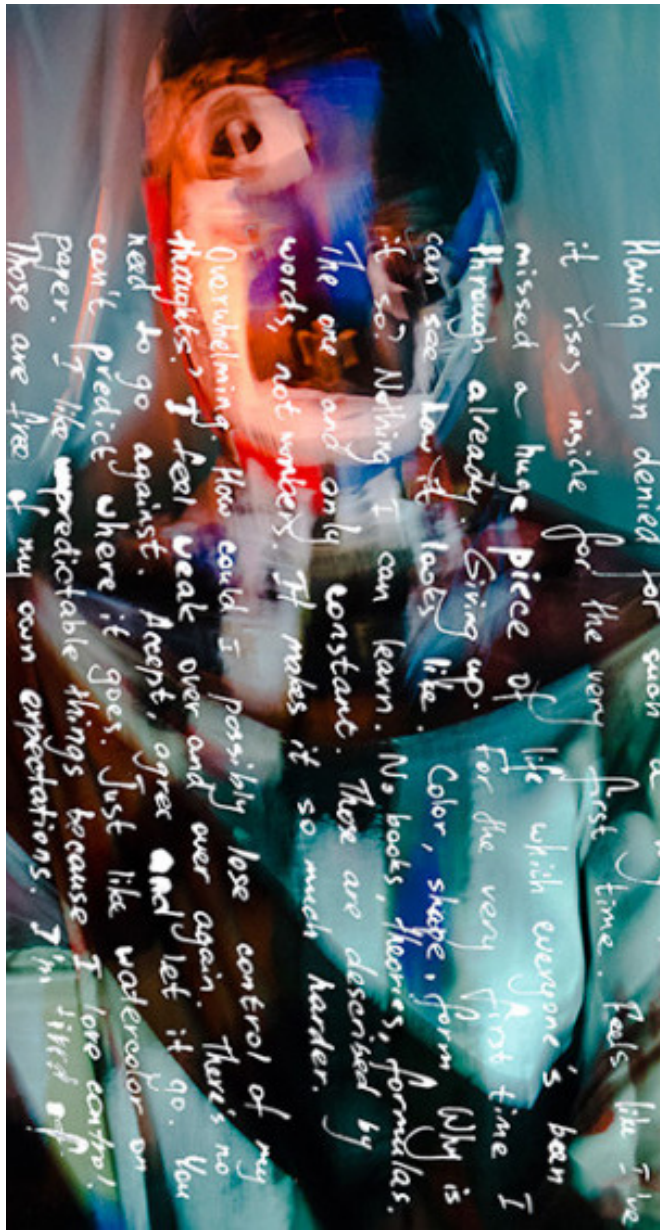 Having been denied for such a
it rises inside for the very first time. Feels like I've
missed a huge piece of life which everyone's been
through already. Giving up. For the very first time I
can see how it looks like. Color, shape, form. Why is
it so? Nothing I can learn. No books, theories, formulas.
The one and only constant. There are described by
words, not numbers. It makes it so much harder.
Overwhelming. How could I possibly lose control of my
thoughts? I feel weak over and over again. There's no
need to go against. Accept, agree and let it go. You
can't predict where it goes. Just like watercolor on
paper. I like unpredictable things because I love control.
Those are free of my own expectations. I'm tired of